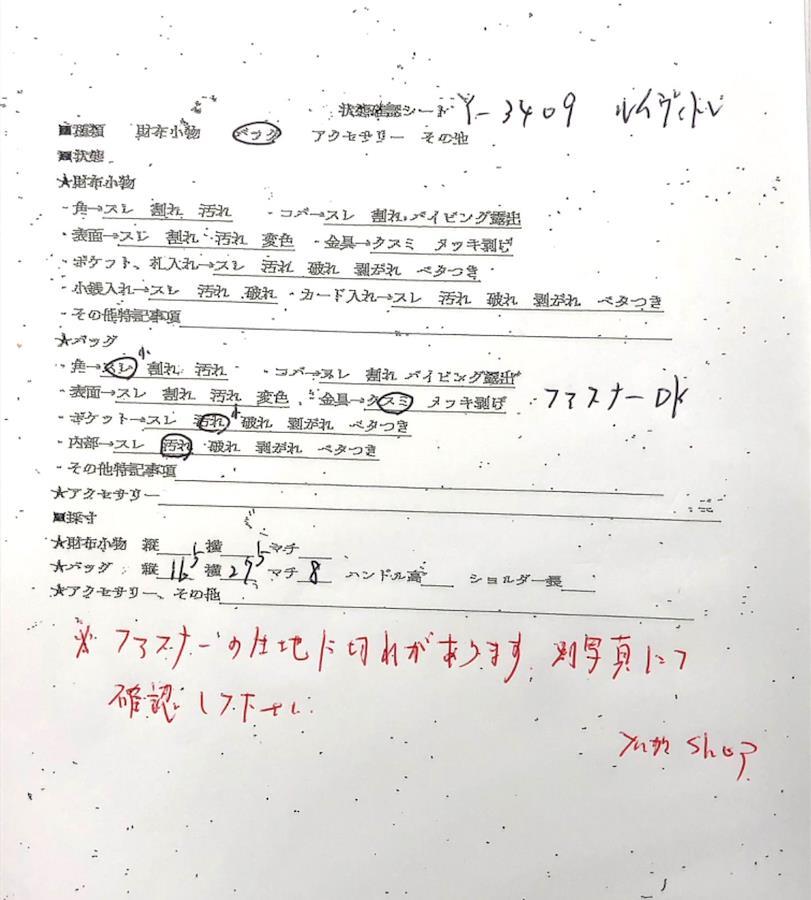 状態確認シート Y-3409 ルイヴィトン
■種類 財布小物 バッグ アクセサリー その他
■状態
★財布小物
・角→スレ 割れ 汚れ ・コバ→スレ 割れ パイピング露出
・表面→スレ 割れ 汚れ 変色 ・金具→クスミ メッキ剥げ
・ポケット、札入れ→スレ 汚れ 破れ 剥がれ ベタつき
・小銭入れ→スレ 汚れ 破れ ・カード入れ→スレ 汚れ 破れ 剥がれ ベタつき
・その他特記事項
★バッグ
・角→スレ 小 割れ 汚れ ・コバ→スレ 割れ パイピング露出
・表面→スレ 割れ 汚れ 変色 ・金具→クスミ メッキ剥げ ファスナーOK
・ポケット→スレ 汚れ 小 破れ 剥がれ ベタつき
・内部→スレ 汚れ 破れ 剥がれ ベタつき
・その他特記事項
★アクセサリー
■採寸
★財布小物 縦 横 マチ
★バッグ 縦 16.5 横 27.5 マチ 8 ハンドル高 ショルダー長
★アクセサリー、その他
※ ファスナーの生地に切れがあります、別写真にて
確認して下さい
Shop